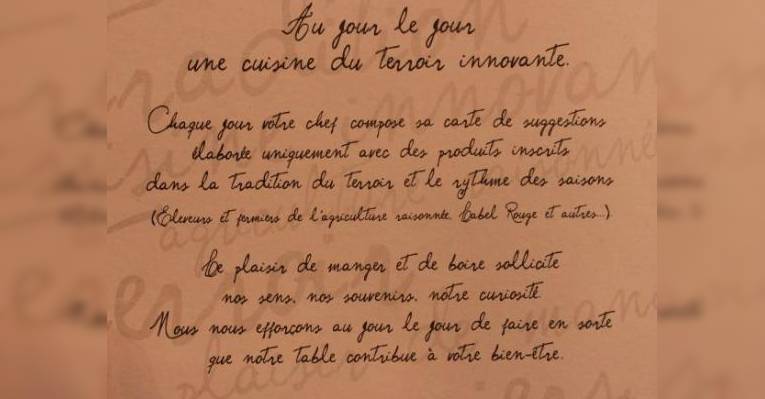 Au jour le jour
une cuisine du terroir innovante.
Chaque jour votre chef compose sa carte de suggestions
élaborée uniquement avec des produits inscrits
dans la tradition du terroir et le rythme des saisons
(Eleveurs et fermiers de l'agriculture raisonnée, Label Rouge et autres...)
Le plaisir de manger et de boire sollicite
nos sens, nos souvenirs, notre curiosité
Nous nous efforçons au jour le jour de faire en sorte
que notre table contribue à votre bien-être.